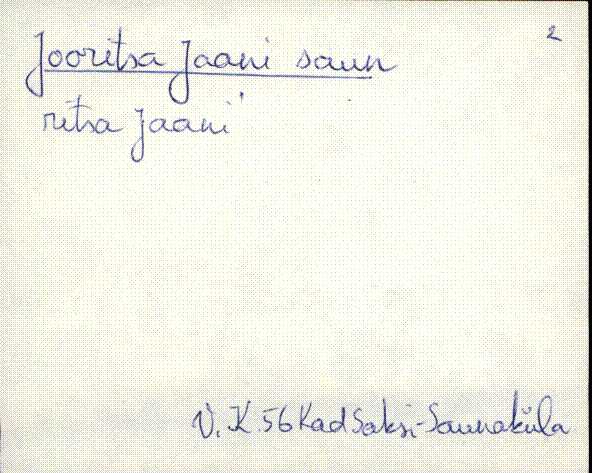 2
Jooritsa Jaani saun
ritsa Jaani
V. K. 56 Kad Saksi-Saunaküla